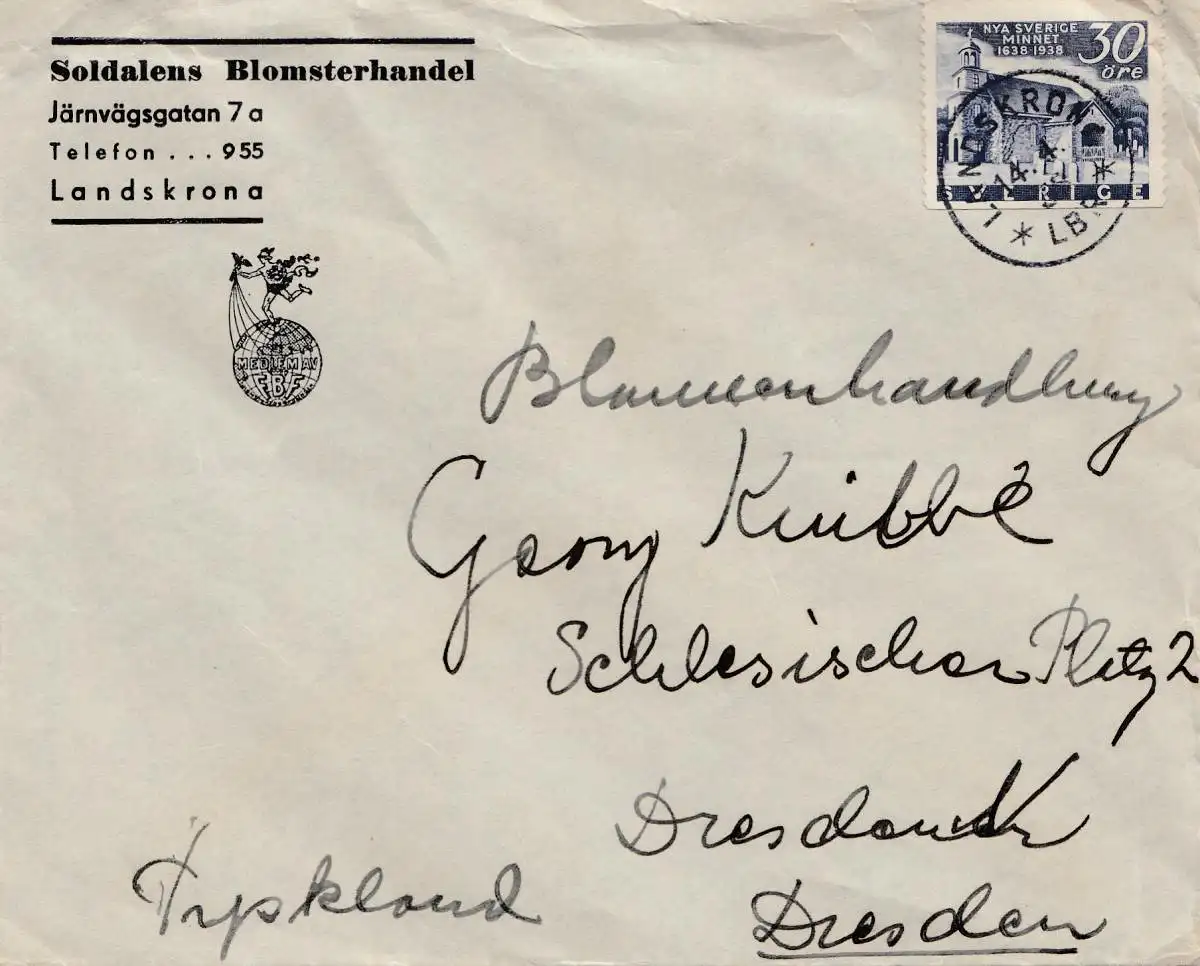 Soldalens Blomsterhandel
Järnvägsgatan 7 a
Telefon . . . 955
Landskrona
MEDLEM AV
FBF
NYA SVERIGE
MINNET
1638-1938
30
öre
SVERIGE
LANDSKRONA
14.4.
LBR
Blumenhandlung
Georg Knibbé
Schlesischer Platz 2
Dresden N
Dresden
Tyskland